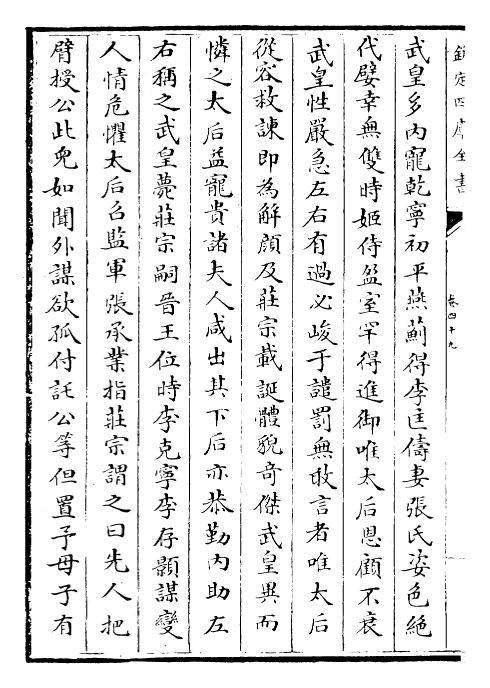 欽定四庫全書
卷四十九
武皇多內寵乾寧初平燕薊得李匡儔妻張氏姿色絕
代嬖幸無雙時姬侍盈室罕得進御唯太后恩顧不衰
武皇性嚴急左右有過必峻于譴罰無敢言者唯太后
從容救諫即為解顔及莊宗載誕體貌奇傑武皇異而
憐之太后益寵貴諸夫人咸出其下后亦恭勤內助左
右稱之武皇薨莊宗嗣晉王位時李克寧李存顥謀變
人情危懼太后召監軍張承業指莊宗謂之曰先人把
臂授公此兒如聞外謀欲孤付託公等但置予母子有